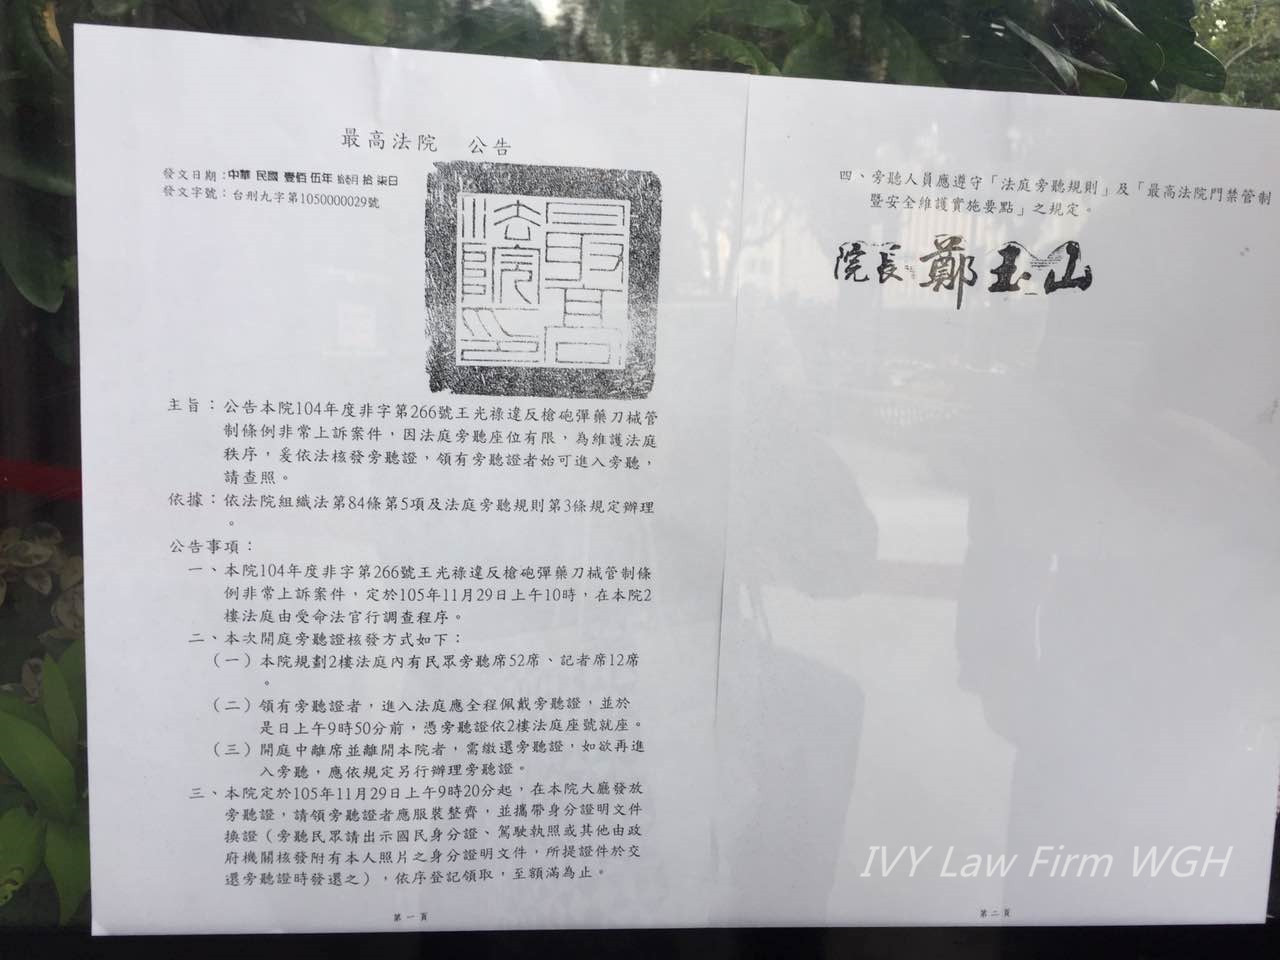 最高法院　公告
發文日期：中華 民國 壹佰 伍年 拾壹月 拾 柒日
發文字號：台刑九字第1050000029號
最高法院印
主旨：公告本院104年度非字第266號王光祿違反槍砲彈藥刀械管
制條例非常上訴案件，因法庭旁聽座位有限，為維護法庭
秩序，爰依法核發旁聽證，領有旁聽證者始可進入旁聽，
請查照。
依據：依法院組織法第84條第5項及法庭旁聽規則第3條規定辦理
。
公告事項：
一、本院104年度非字第266號王光祿違反槍砲彈藥刀械管制條
例非常上訴案件，定於105年11月29日上午10時，在本院2
樓法庭由受命法官行調查程序。
二、本次開庭旁聽證核發方式如下：
（一）本院規劃2樓法庭內有民眾旁聽席52席、記者席12席
。
（二）領有旁聽證者，進入法庭應全程佩戴旁聽證，並於
是日上午9時50分前，憑旁聽證依2樓法庭座號就座。
（三）開庭中離席並離開本院者，需繳還旁聽證，如欲再進
入旁聽，應依規定另行辦理旁聽證。
三、本院定於105年11月29日上午9時20分起，在本院大廳發放
旁聽證，請領旁聽證者應服裝整齊，並攜帶身分證明文件
換證（旁聽民眾請出示國民身分證、駕駛執照或其他由政
府機關核發附有本人照片之身分證明文件，所提證件於交
還旁聽證時發還之），依序登記領取，至額滿為止。
第一頁
四、旁聽人員應遵守「法庭旁聽規則」及「最高法院門禁管制
暨安全維護實施要點」之規定。
院長 鄭玉山
第二頁
IVY Law Firm WGH